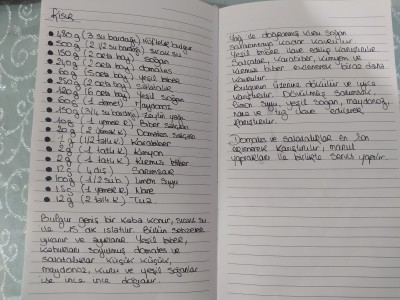 Kısır
480g (3 su bardağı) Köftelik bulgur
500g (2 1/2 su bardağı) sıcak su
150g (2 orta boy) soğan
240g (2 orta boy) domates
60g (5 orta boy) yeşil biber
250g (2 orta boy) salatalık
120g (6 orta boy) Yeşil Soğan
60g (1 demet) Maydanoz
150g (3/4 su bardağı) Zeytin yağı
10g (1 yemek k.) Biber salçası
20g (2 yemek k) Domates salçası
(1/2 tatlı k) Karabiber
2g (1 tatlı k) Kimyon
2g (1 tatlı k) Kırmızı biber
12g (4 diş) Sarımsak
100g (1/2 s.b.) Limon suyu
1.5g (1 yemek k.) Nane
12g (2 tatlı k) Tuz
Bulgur geniş bir kaba konur, sıcak su
ile 15 dk ıslatılır. Bütün sebzeler
yıkanır ve ayıklanır. Yeşil biber,
kabukları soyulmuş domates ve
salatalıklar küçük küçük,
maydanoz, kuru ve yeşil soğanlar
ise ince ince doğranır.
Yağ ile doğranmış kuru soğan
sararıncaya kadar kavrulur.
Yeşil biber ilave edilip karıştırılır.
Salçalar, karabiber, kimyon ve
kırmızı biber eklenerek biraz daha
kavrulur.
Bulgurun üzerine dökülür ve iyice
karıştırılır. Dövülmüş sarımsak,
limon suyu, yeşil soğan, maydanoz,
nane ve tuz ilave edilerek
karıştırılır.
Domates ve salatalıklar en son
eklenerek karıştırılır, marul
yaprakları ile birlikte servis yapılır.